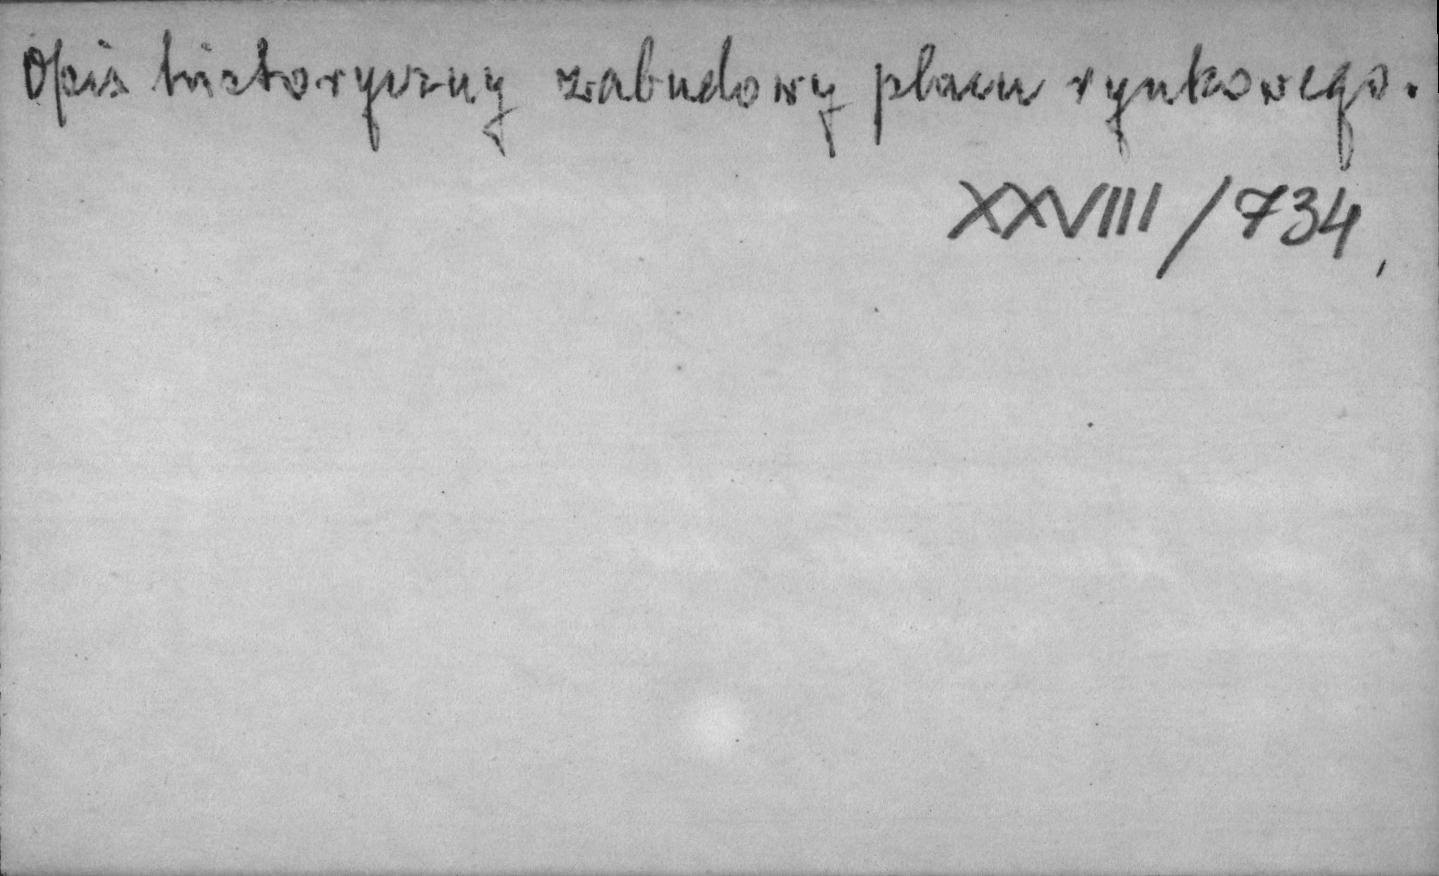 Opis historyczny zabudowy placu rynkowego.
XXVIII/734,